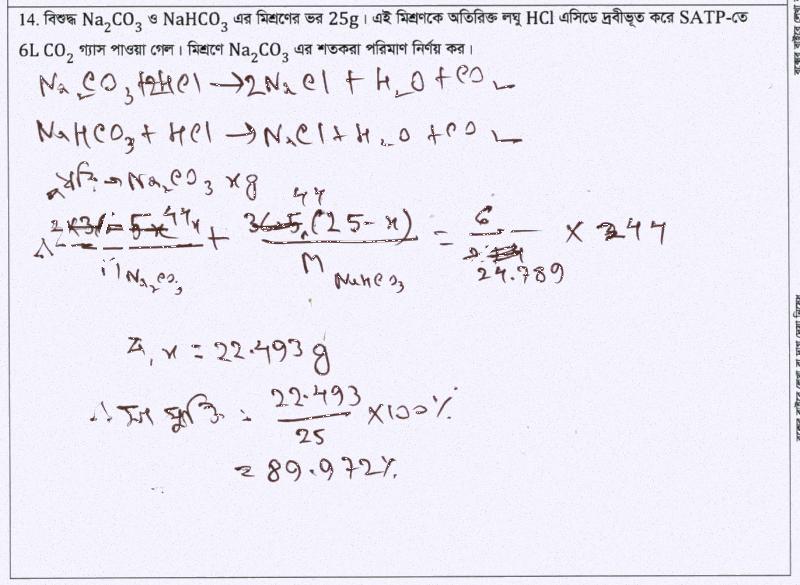 14. বিশুদ্ধ Na₂CO₃ ও NaHCO₃ এর মিশ্রণের ভর 25g। এই মিশ্রণকে অতিরিক্ত লঘু HCl এসিডে দ্রবীভূত করে SATP-তে
6L CO₂ গ্যাস পাওয়া গেল। মিশ্রণে Na₂CO₃ এর শতকরা পরিমাণ নির্ণয় কর।
Na₂CO₃ + 2HCl → 2NaCl + H₂O + CO₂
NaHCO₃ + HCl → NaCl + H₂O + CO₂
ধরি → Na₂CO₃ x g
∴ 44x / M Na₂CO₃ + 44 (25-x) / M NaHCO₃ = 6 / 24.789 × 44
বা, x = 22.493 g
22.493 / 25 × 100%
= 89.972%